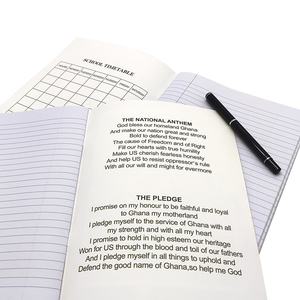 SCHOOL TIMETABLE
THE NATIONAL ANTHEM
God bless our homeland Ghana
And make our nation great and strong
Bold to defend forever
The cause of Freedom and of Right
Fill our hearts with true humility
Make US cherish fearless honesty
And help US to resist oppressor's rule
With all our will and might for evermore
THE PLEDGE
I promise on my honour to be faithful and loyal
to Ghana my motherland
I pledge myself to the service of Ghana with all
my strength and with all my heart
I promise to hold in high esteem our heritage
Won for US through the blood and toil of our fathers
And I pledge myself in all things to uphold and
Defend the good name of Ghana,so help me God